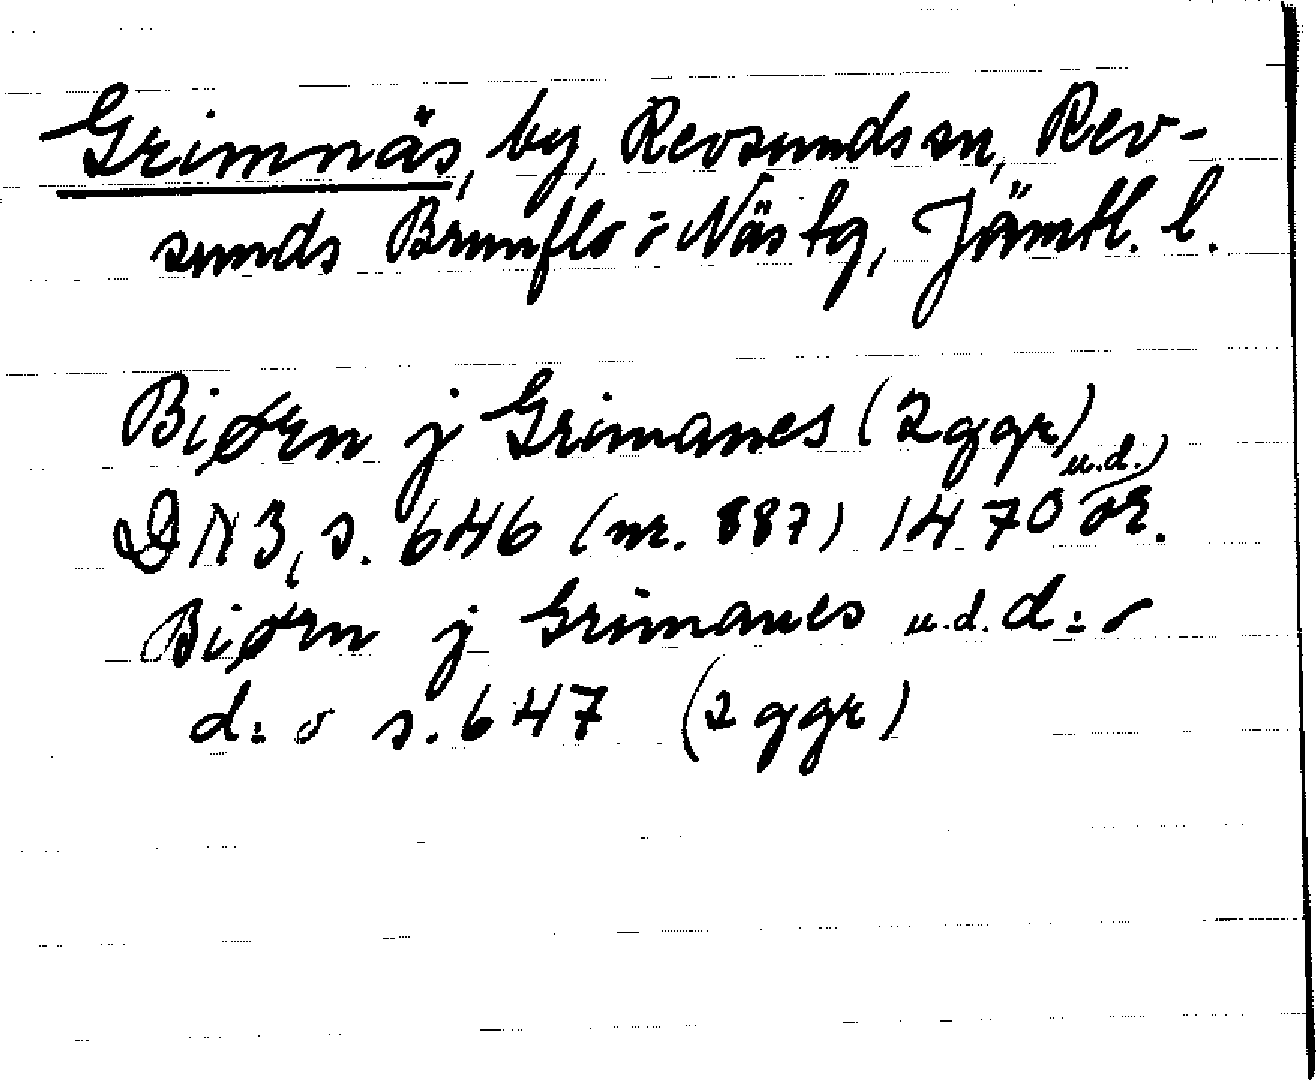 Grimnäs, by, Revsunds sn, Rev-
sunds Brunflo o Näs tg, Jämtl. l.
Biørn j Grimanes (2 ggr)
u.d.)
DN 3, s. 646 (nr. 887) 1470 or.
Biørn j Grimanes u.d. d:o
d:o s. 647 (2 ggr)